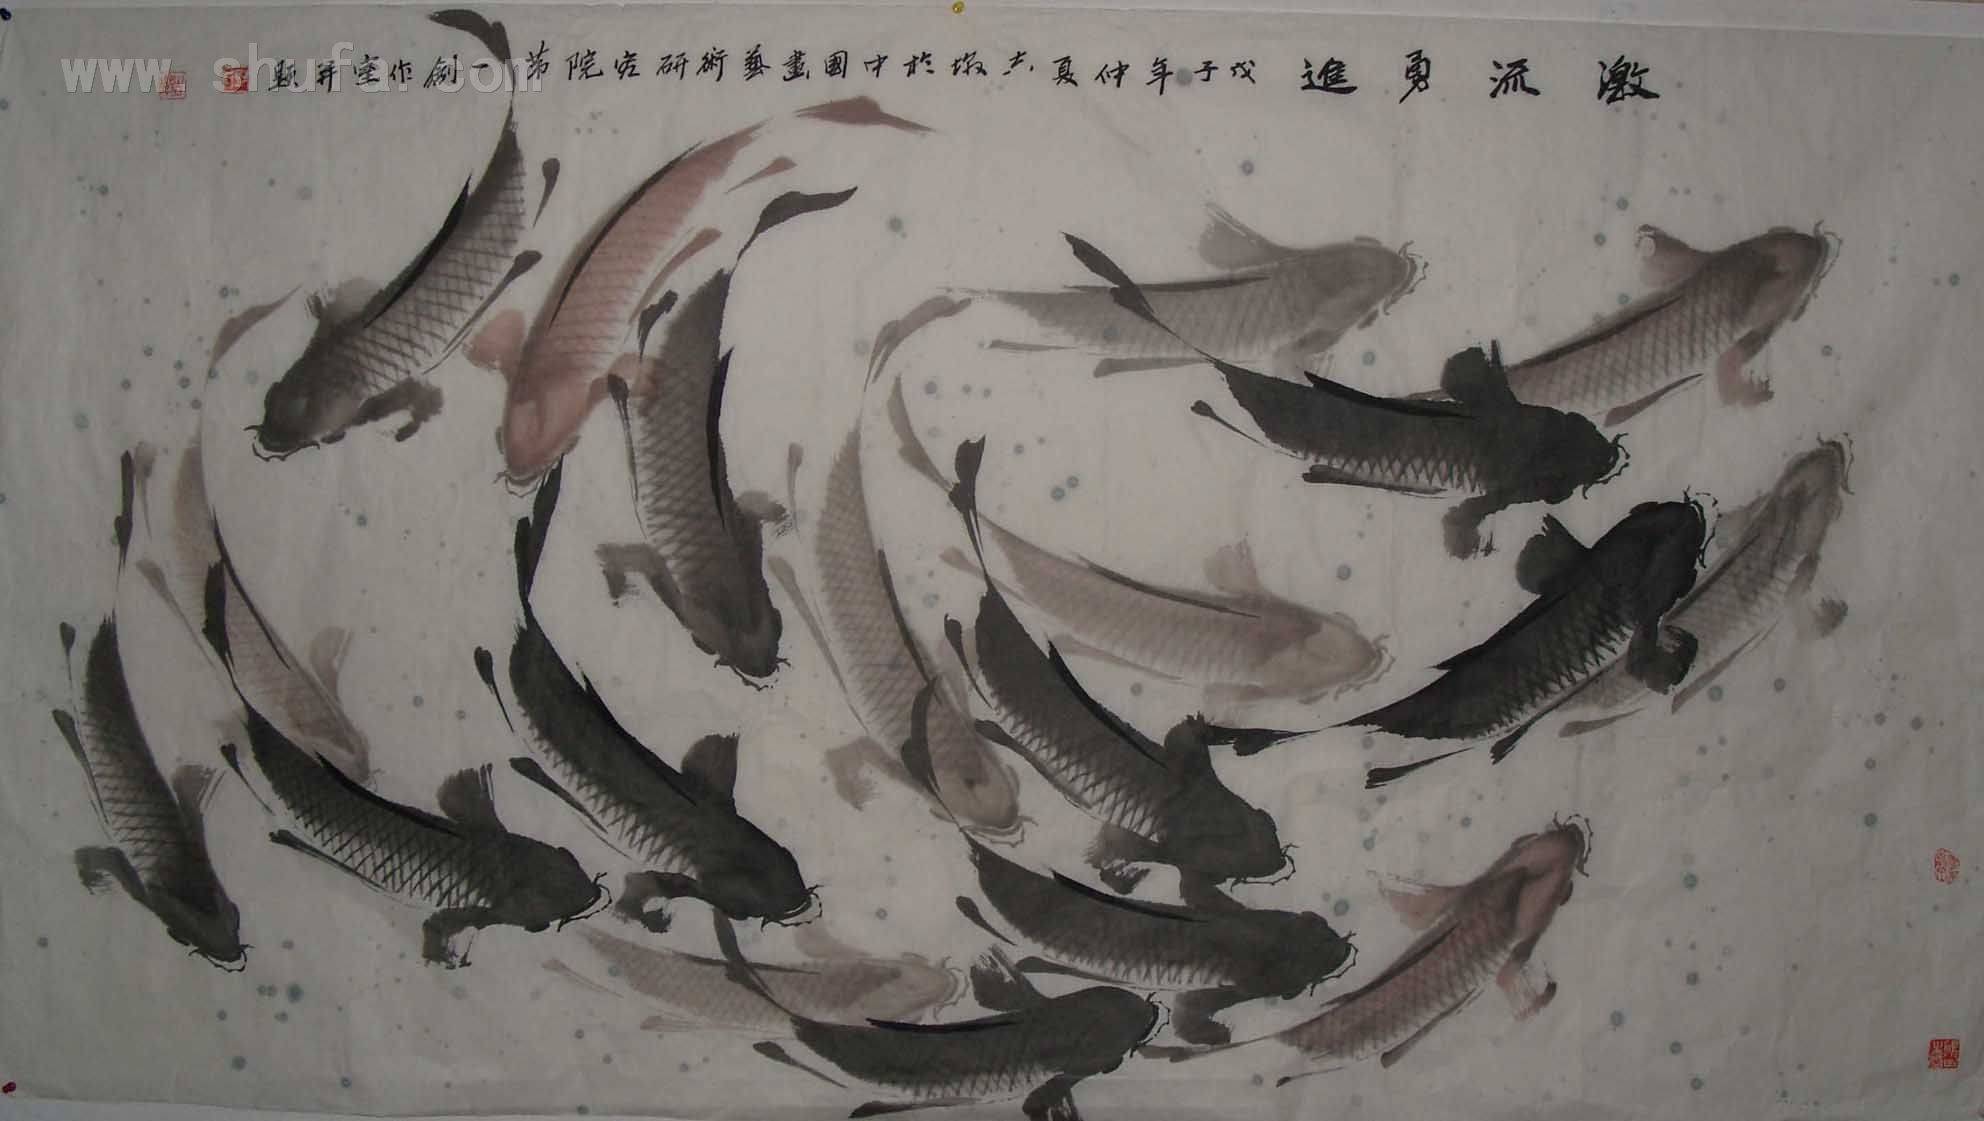 激流勇進 戊子年仲夏志於中國畫藝術研究院第一創作室并題
www.shufa.com